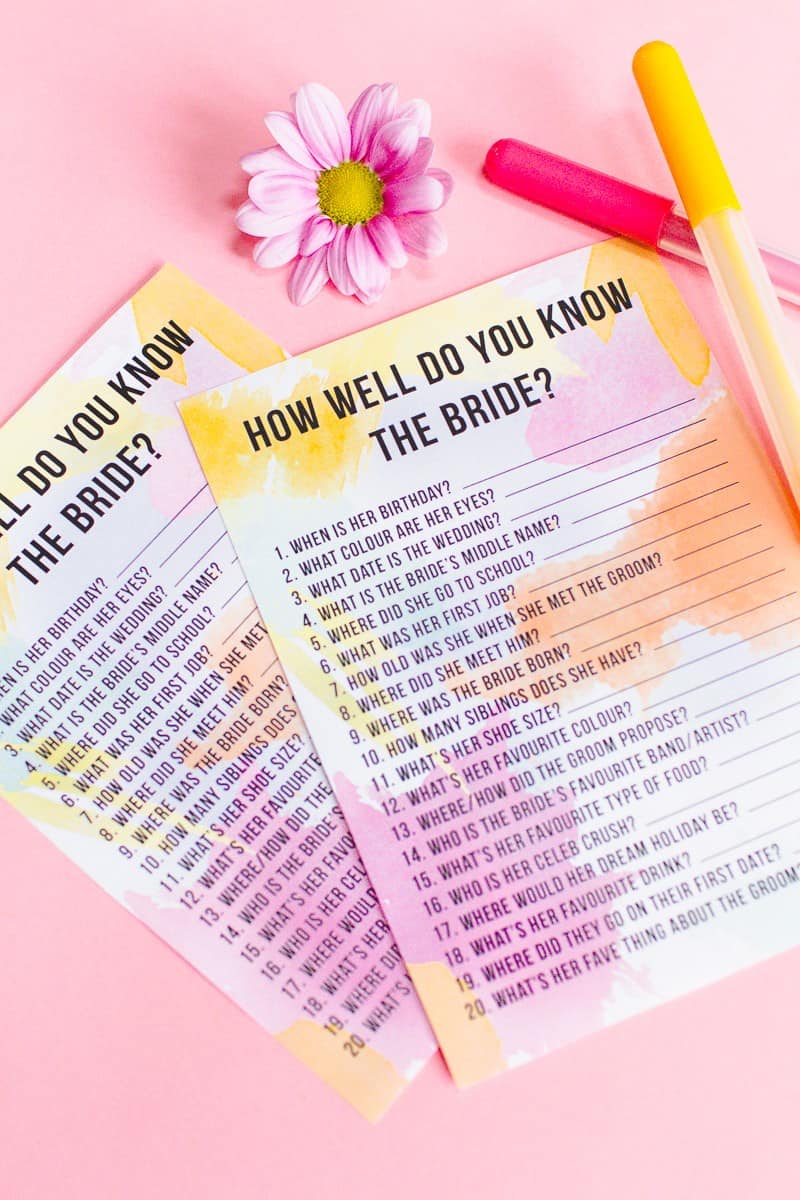 HOW WELL DO YOU KNOW
THE BRIDE?
1. WHEN IS HER BIRTHDAY?
2. WHAT COLOUR ARE HER EYES?
3. WHAT DATE IS THE WEDDING?
4. WHAT IS THE BRIDE'S MIDDLE NAME?
5. WHERE DID SHE GO TO SCHOOL?
6. WHAT WAS HER FIRST JOB?
7. HOW OLD WAS SHE WHEN SHE MET THE GROOM?
8. WHERE DID SHE MEET HIM?
9. WHERE WAS THE BRIDE BORN?
10. HOW MANY SIBLINGS DOES SHE HAVE?
11. WHAT'S HER SHOE SIZE?
12. WHAT'S HER FAVOURITE COLOUR?
13. WHERE/HOW DID THE GROOM PROPOSE?
14. WHO IS THE BRIDE'S FAVOURITE BAND/ARTIST?
15. WHAT'S HER FAVOURITE TYPE OF FOOD?
16. WHO IS HER CELEB CRUSH?
17. WHERE WOULD HER DREAM HOLIDAY BE?
18. WHAT'S HER FAVOURITE DRINK?
19. WHERE DID THEY GO ON THEIR FIRST DATE?
20. WHAT'S HER FAVE THING ABOUT THE GROOM
DO YOU KNOW
THE BRIDE?
IS HER BIRTHDAY?
WHAT COLOUR ARE HER EYES?
3. WHAT DATE IS THE WEDDING?
4. WHAT IS THE BRIDE'S MIDDLE NAME?
5. WHERE DID SHE GO TO SCHOOL?
6. WHAT WAS HER FIRST JOB?
7. HOW OLD WAS SHE WHEN SHE MET
8. WHERE DID SHE MEET HIM?
9. WHERE WAS THE BRIDE BORN?
10. HOW MANY SIBLINGS DOES
11. WHAT'S HER SHOE SIZE?
12. WHAT'S HER FAVOURITE
13. WHERE/HOW DID THE
14. WHO IS THE BRIDE'S
15. WHAT'S HER FAVO
16. WHO IS HER CELEB
17. WHERE WOULD
18. WHAT'S HER
19. WHERE DID
20. WHAT'S